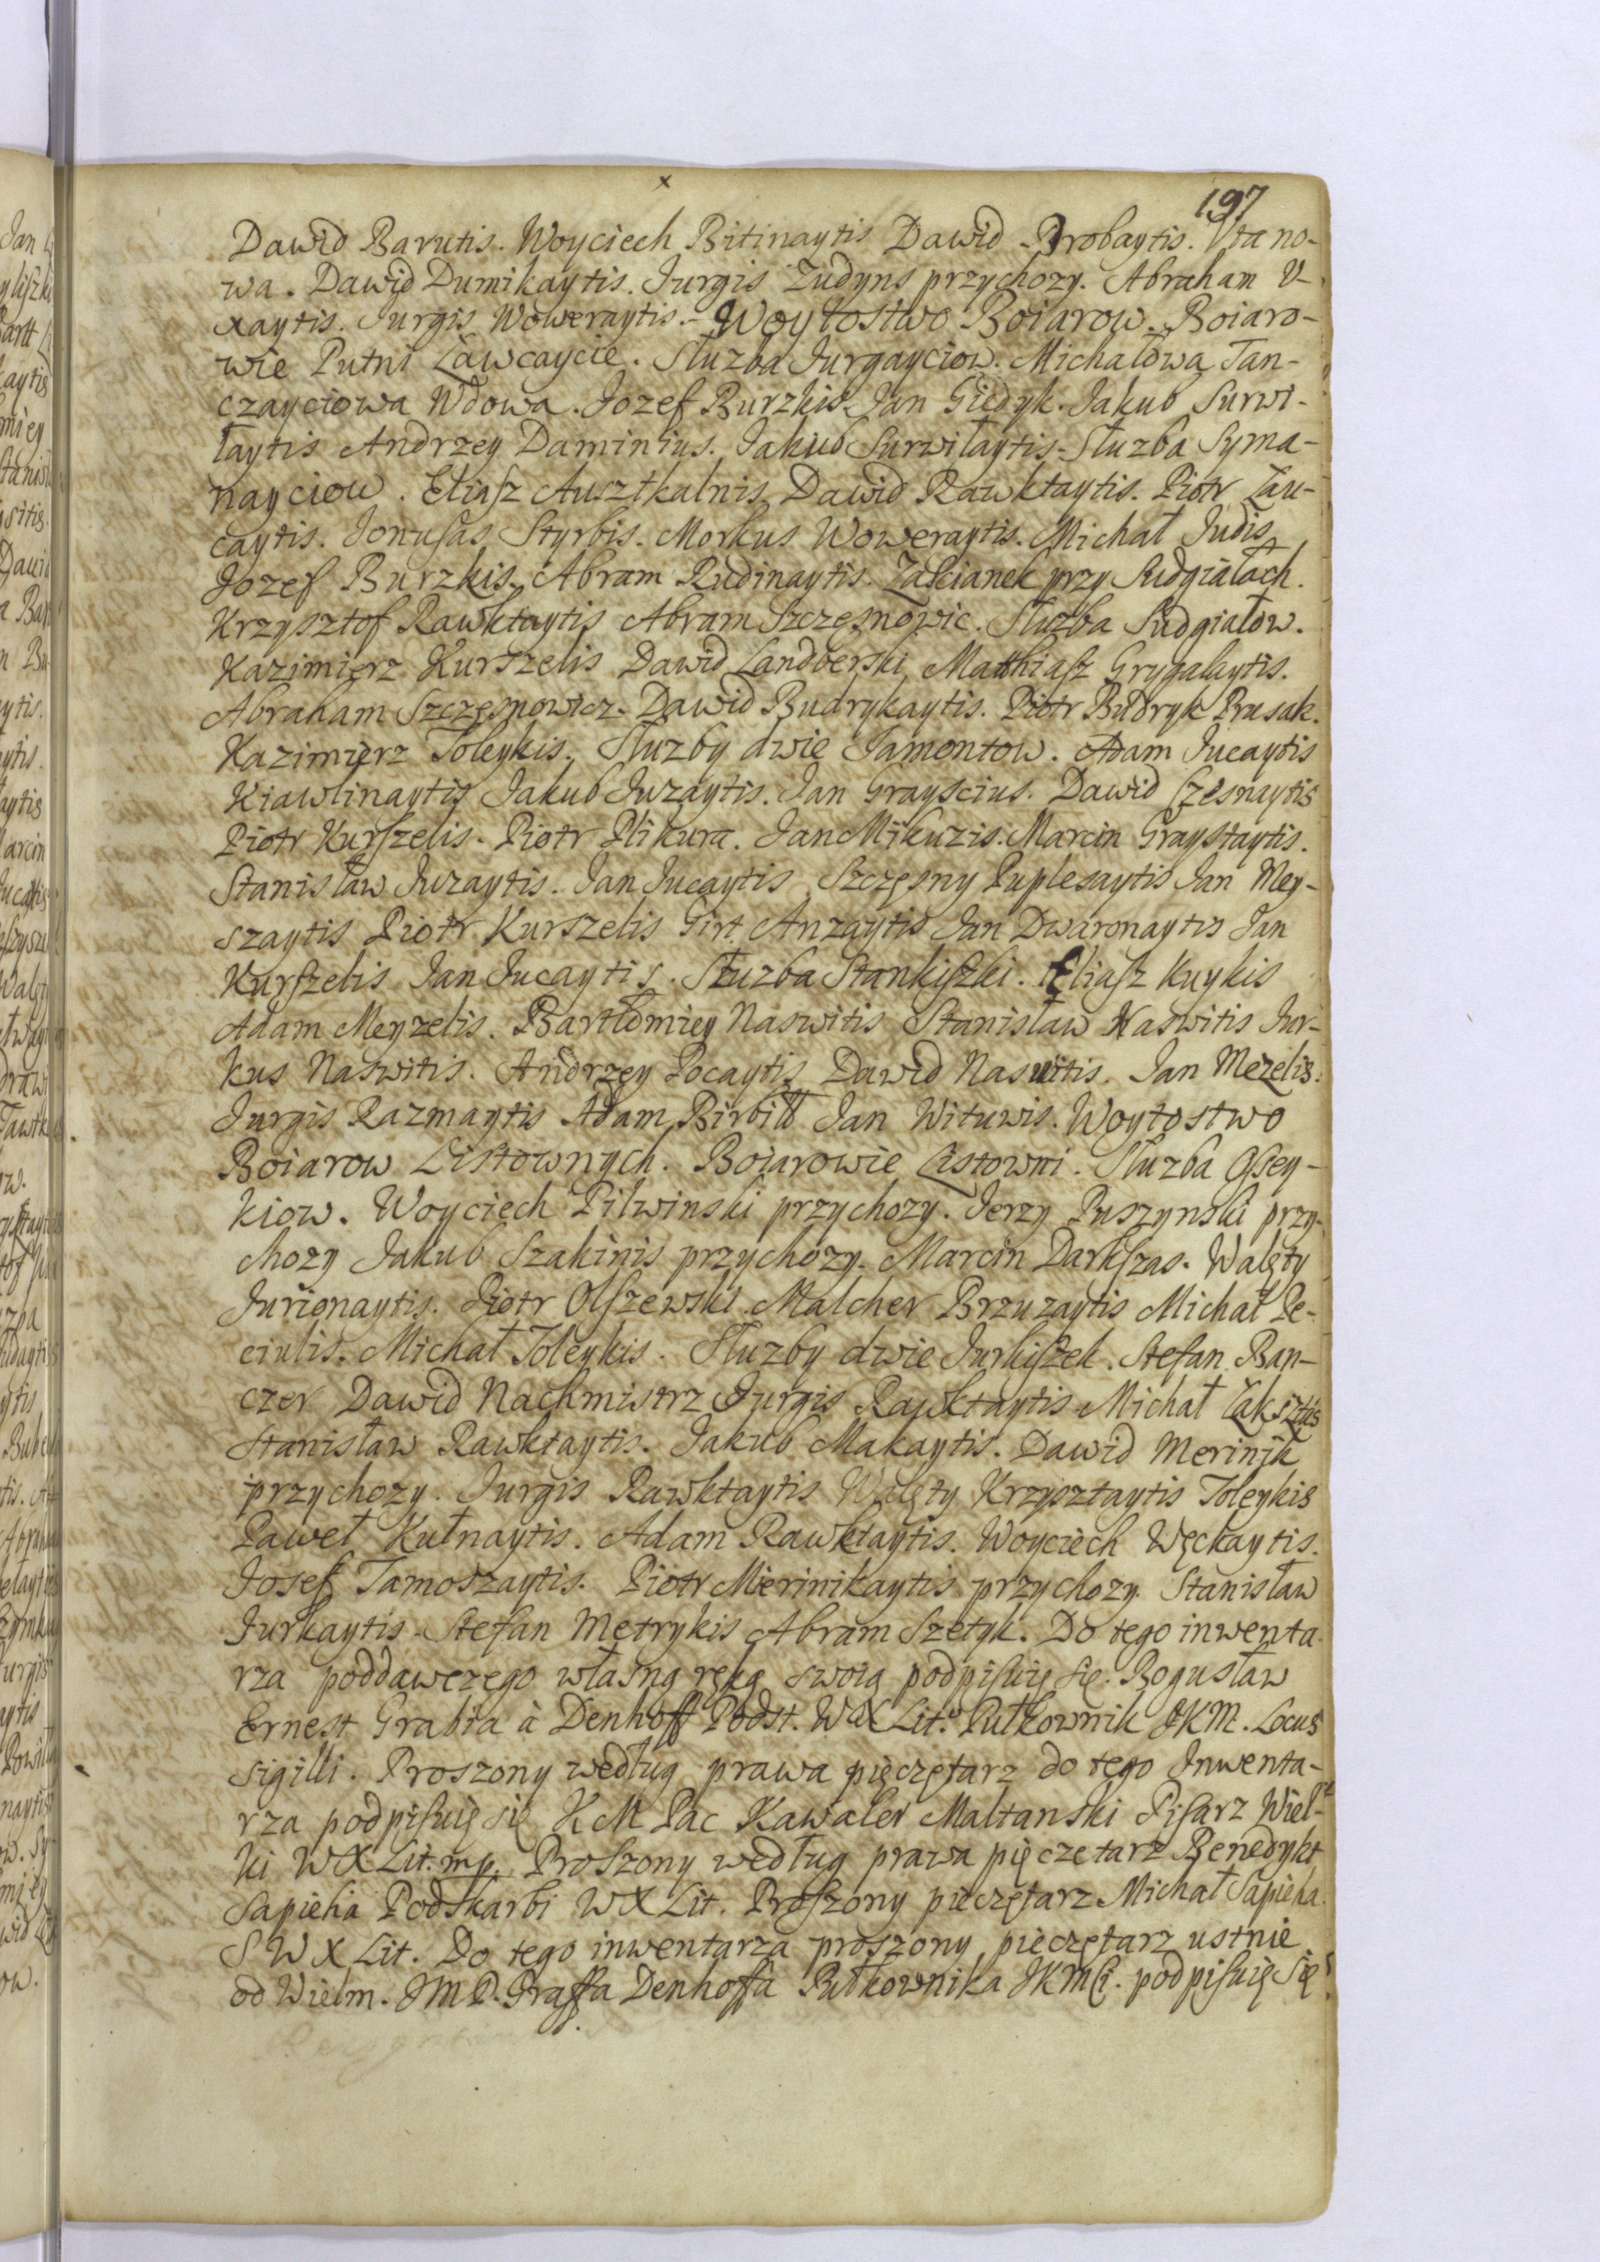 197
Dawid Barutis. Woyciech Bitinaytis Dawid Probaytis. Vta no-
wa. Dawid Dumikaytis. Jurgis Zudyns przychozy. Abraham V-
xaytis. Jurgis Woweraytis.- Woytostwo Boiarow. Boiaro-
wie Putni Ławcaycie. Służba Jurgayciow. Michałowa Jan-
czayciowa Wdowa. Jozef Burzkis. Jan Giedyk. Jakub Surwi-
łaytis Andrzey Daminius. Jakub Surwiłaytis. Służba Syma-
nayciow. Eliasz Ausztkalnis Dawid Rawktaytis. Piotr Łau-
caytis. Jonusas Styrbis. Morkus Woweraytis. Michał Judis
Jozef Burzkis. Abram Rudinaytis. Zascianek przy Sudgiałach.
Krzysztof Rawktaytis Abram Szczęsnowic. Służba Sudgiałow.
Kazimierz Kurszelis Dawid Landberski Matthiasz Grygalaytis.
Abraham Szczęsnowicz. Dawid Budrykaytis. Piotr Budryk Prusak.
Kazimierz Toleykis. Służby dwie Jamontow. Adam Jucaytis
Kiawlinaytis Jakub Juzaytis. Jan Grayscius. Dawid Czesnaytis
Piotr Kurszelis. Piotr Plikura. Jan Mikuzis. Marcin Graystaytis.
Stanisław Juzaytis. Jan Jucaytis Szczęsny Puplesaytis Jan Mey-
szaytis Piotr Kurszelis Girt Anzaytis Jan Dwaronaytis Jan
Kurszelis Jan Jucaytis. Służba Stankiszki. Eliasz Kuykis
Adam Meyzelis. Bartłomiey Naswitis Stanisław Naswitis Jur-
kus Naswitis. Andrzey Pocaytis Dawid Naswitis. Jan Mezelis.
Jurgis Razmaytis Adam Birbiłł Jan Wituwis. Woytostwo
Boiarow Listownych. Boiarowie Listowni. Służba Ossey-
kiow. Woyciech Pilwinski przychozy. Jerzy Puszynski przy-
chozy Jakub Szakinis przychozy. Marcin Darkszas. Walęty
Jurionaytis. Piotr Olszewski Malcher Brzuzaytis Michał Pe-
ciulis. Michał Toleykis. Służby dwie Jurkiszek. Stefan Ban-
czer Dawid Nachmistrz Jurgis Rawktaytis Michał Łaksztis
Stanisław Rawktaytis. Jakub Makaytis. Dawid Merinik
przychozy. Jurgis Rawktaytis Walęty Krzysztaytis Toleykis
Paweł Kułnaytis. Adam Rawktaytis. Woyciech Węckaytis.
Josef Tamoszaytis. Piotr Mierinikaytis przychozy. Stanisław
Jurkaytis. Stefan Metrykis Abram Szetyk. Do tego inwenta-
rza poddawczego własną ręką swoią podpisuię się. Bogusław
Ernest Grabia à Denhoff Podst. WX Lit. Pułkownik JKM. Locus
sigilli. Proszony według prawa pięczętarz do tego Inwenta-
rza podpisuię się K M Pac Kawaler Maltanski Pisarz Wiel-
ki WX Lit. mp. Proszony według prawa pięczetarz Benedykt
Sapieha Podskarbi WX Lit. Proszony pieczętarz Michał Sapieha
S W X Lit. Do tego inwentarza proszony pieczętarz ustnie
od Wielm. JMP. Graffa Denhoffa Pułkownika JKMCi. podpisuię się